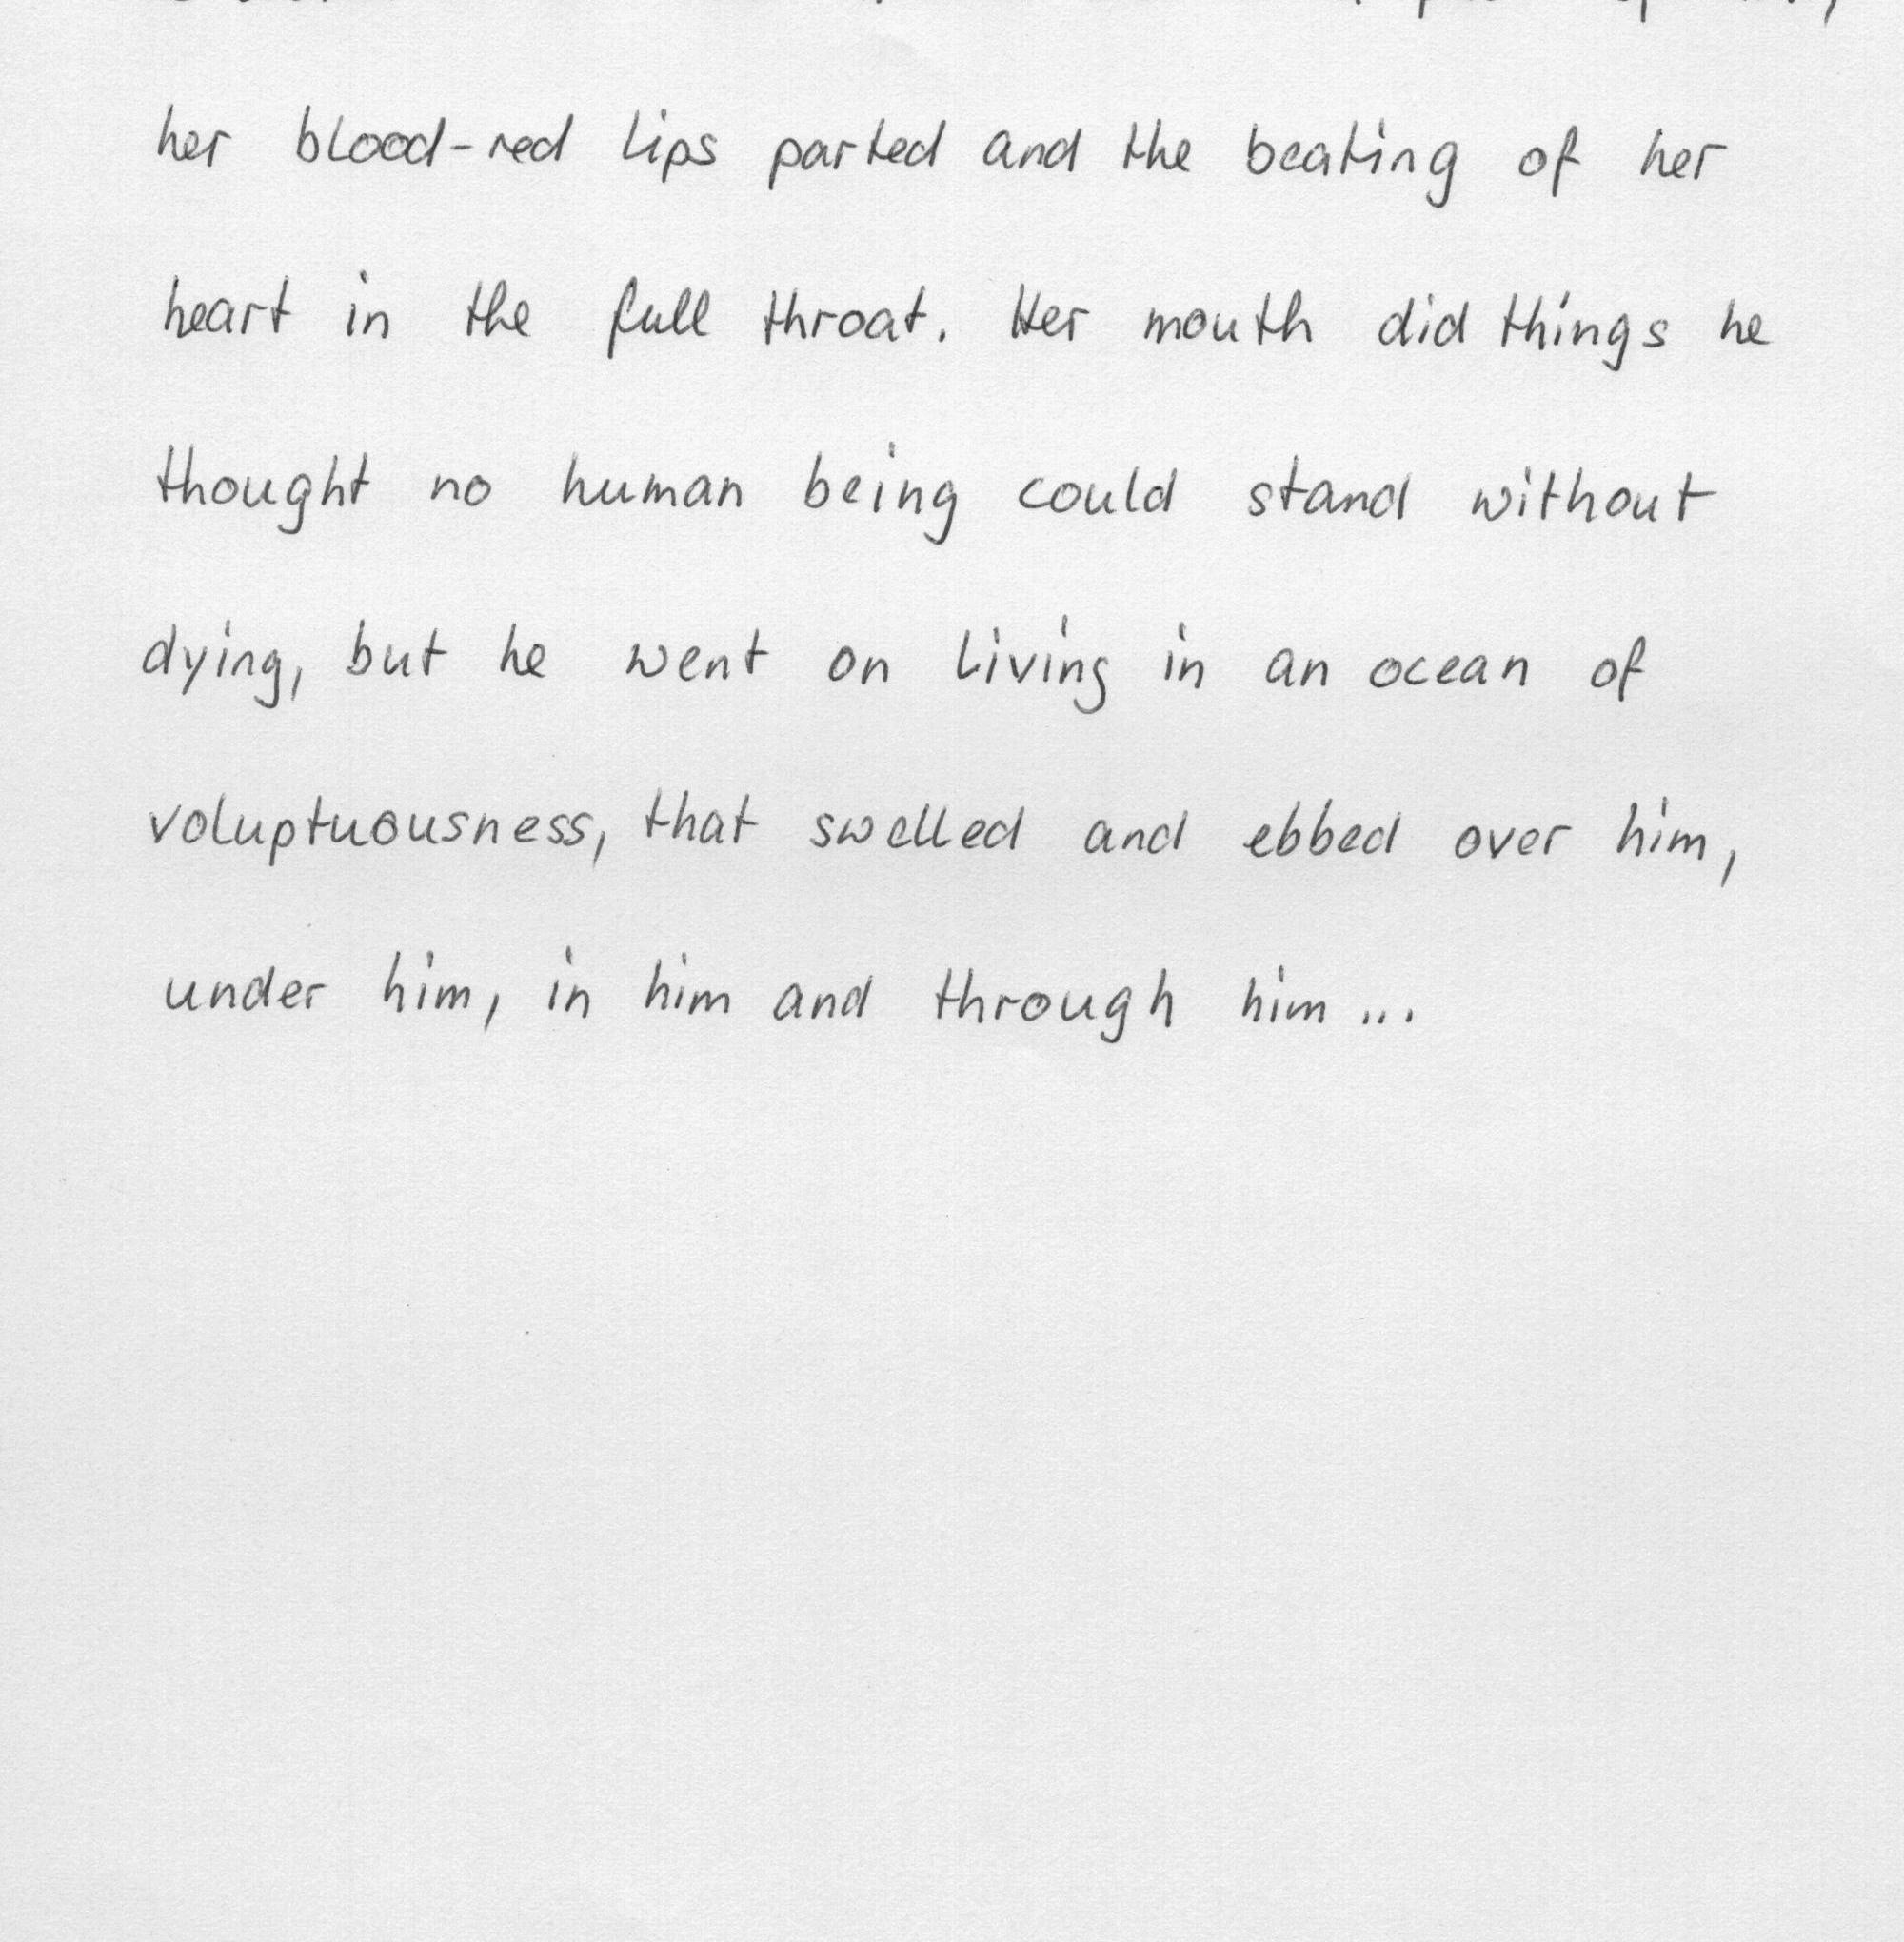 her blood-red lips parted and the beating of her
heart in the full throat. Her mouth did things he
thought no human being could stand without
dying, but he went on living in an ocean of
voluptuousness, that swelled and ebbed over him,
under him, in him and through him...